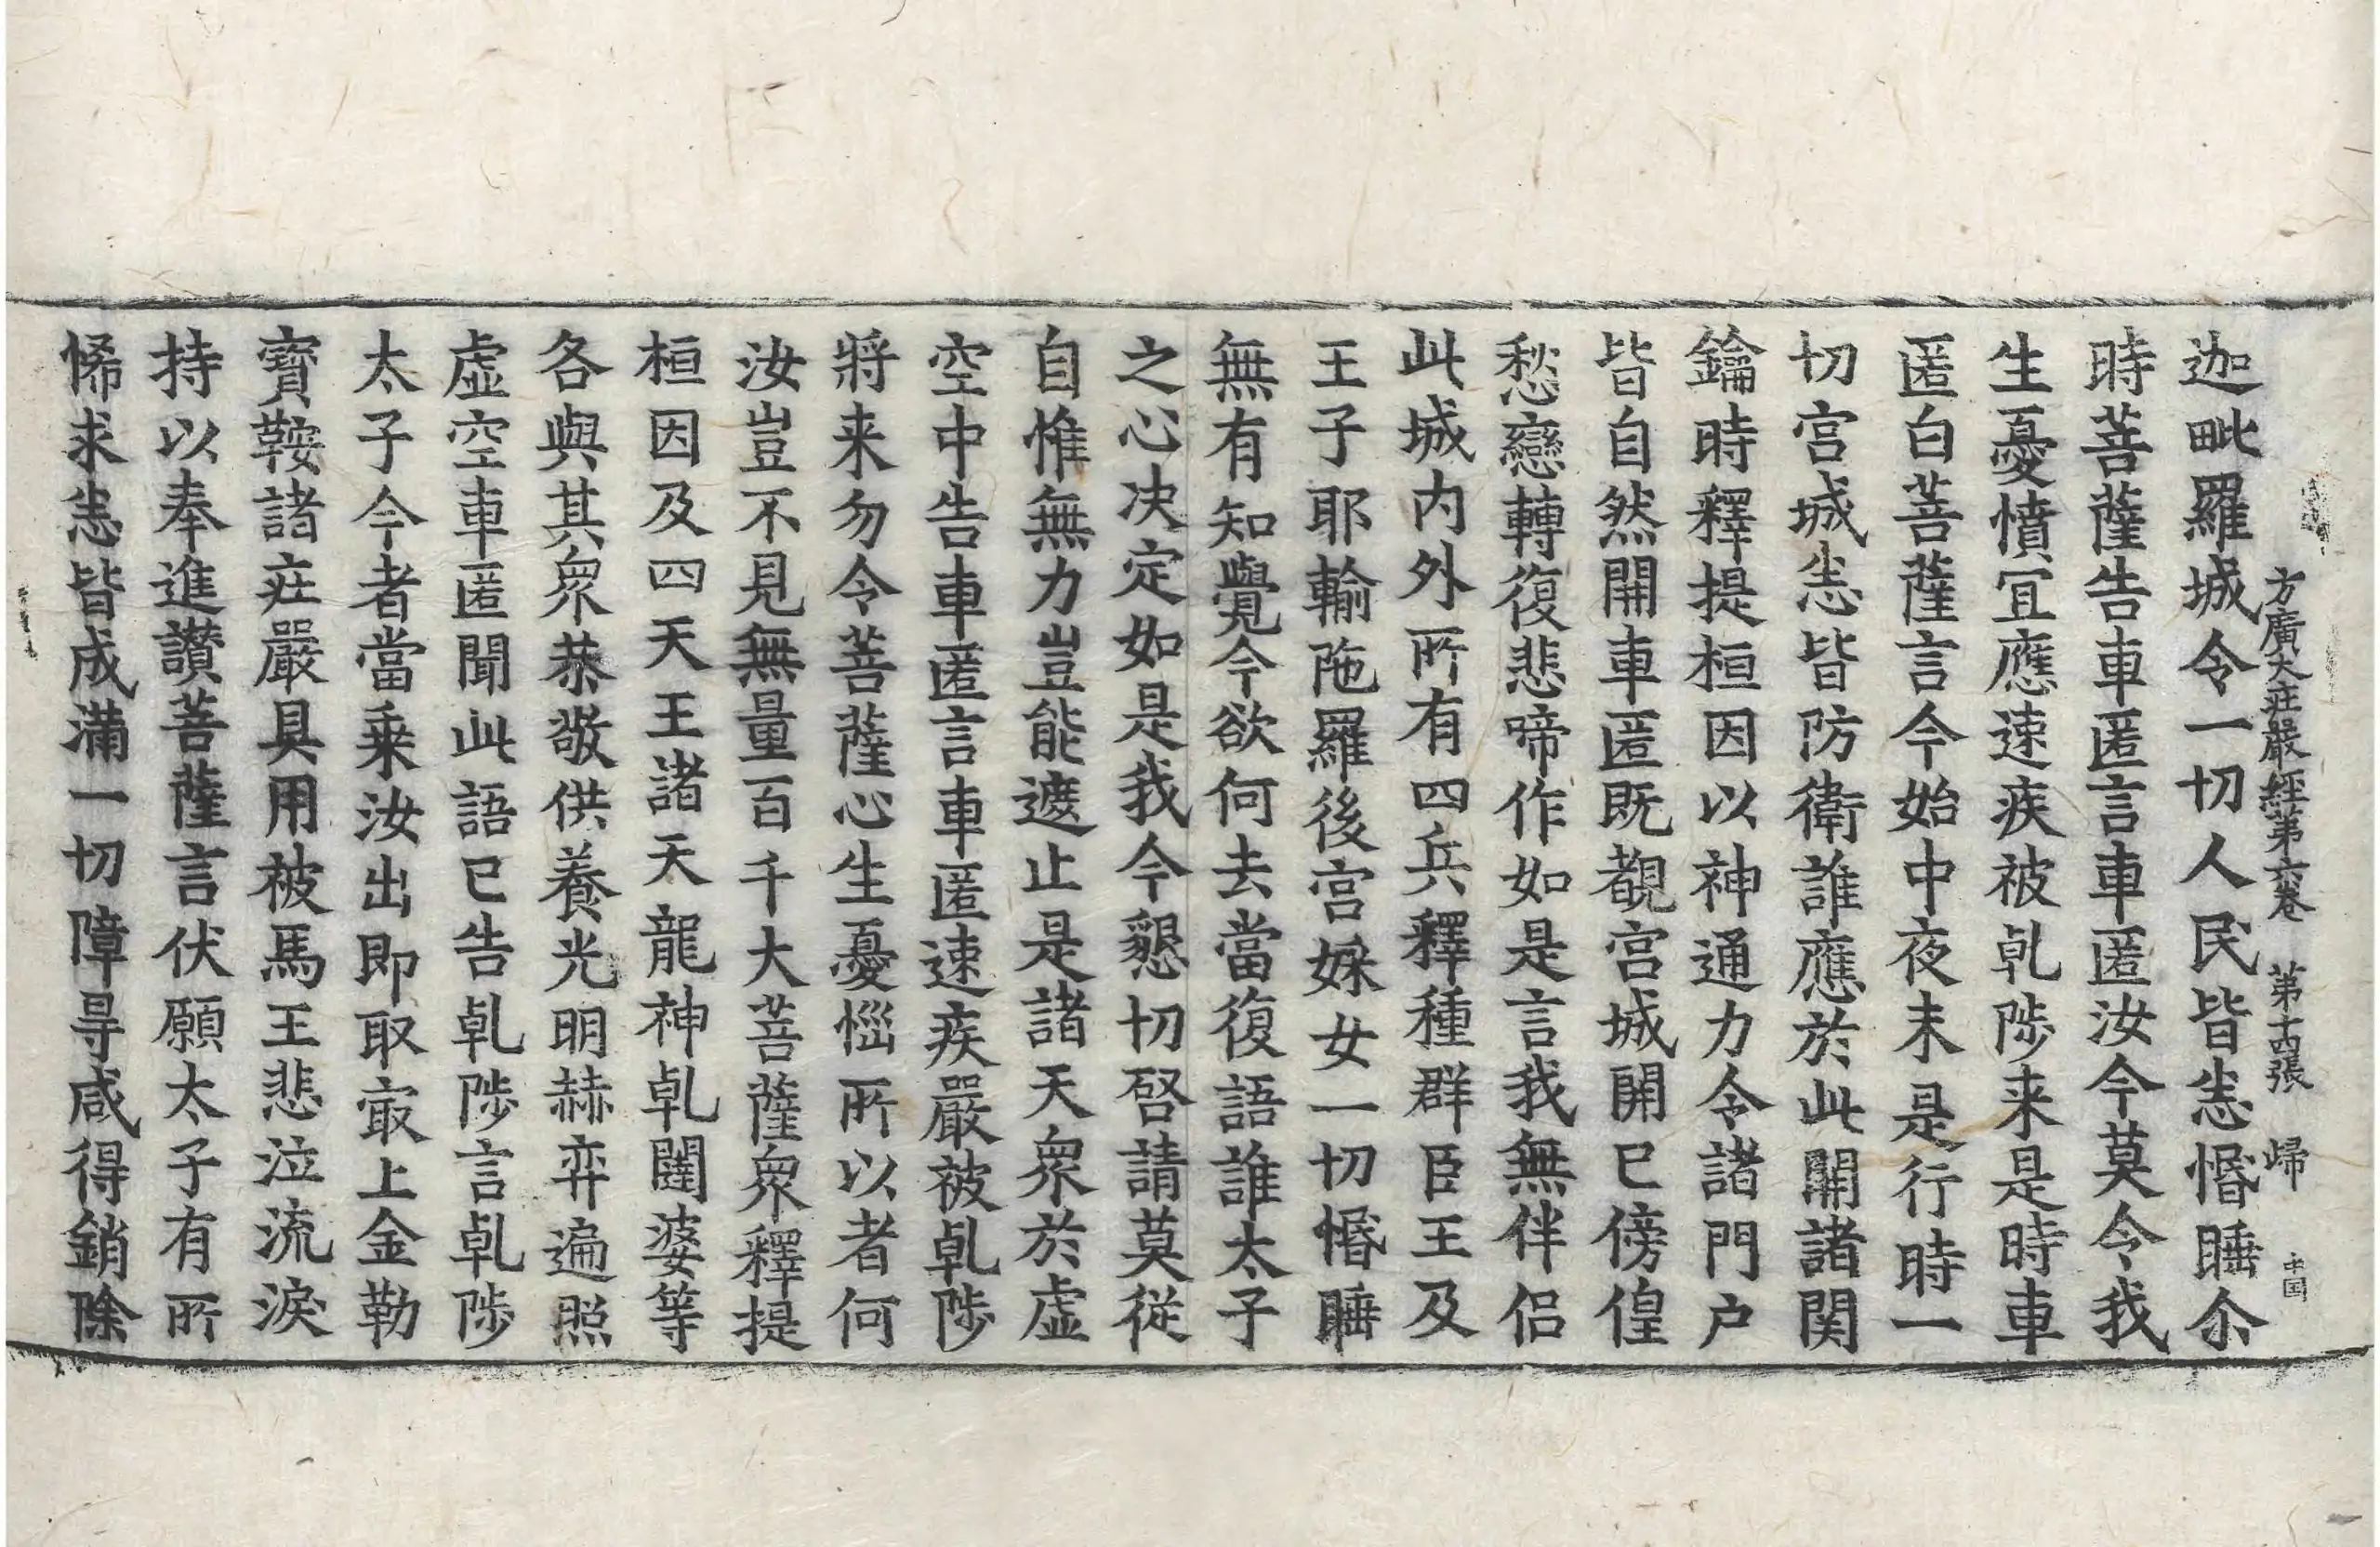 方廣大莊嚴經第六卷 第十四張 歸 中国
迦毗羅城令一切人民皆悉惛睡尒
時菩薩告車匿言車匿汝今莫令我
生憂憤宜應速疾被乹陟来是時車
匿白菩薩言今始中夜未是行時一
切宮城悉皆防衛誰應於此開諸関
鑰時釋提桓因以神通力令諸門户
皆自然開車匿既覩宮城開已傍偟
愁戀轉復悲啼作如是言我無伴侣
此城内外所有四兵釋種群臣王及
王子耶輸陁羅後宮婇女一切惛睡
無有知覺今欲何去當復語誰太子
之心决定如是我今懇切啓請莫從
自惟無力豈能遮止是諸天衆於虛
空中告車匿言車匿速疾嚴被乹陟
將来勿令菩薩心生憂惱所以者何
汝豈不見無量百千大菩薩衆釋提
桓因及四天王諸天龍神乹闥婆等
各與其衆恭敬供養光明赫弈遍照
虛空車匿聞此語已告乹陟言乹陟
太子今者當乗汝出即取㝡上金勒
寶鞍諸莊嚴具用被馬王悲泣流淚
持以奉進讃菩薩言伏願太子有所
悕求悉皆成滿一切障㝵咸得銷除